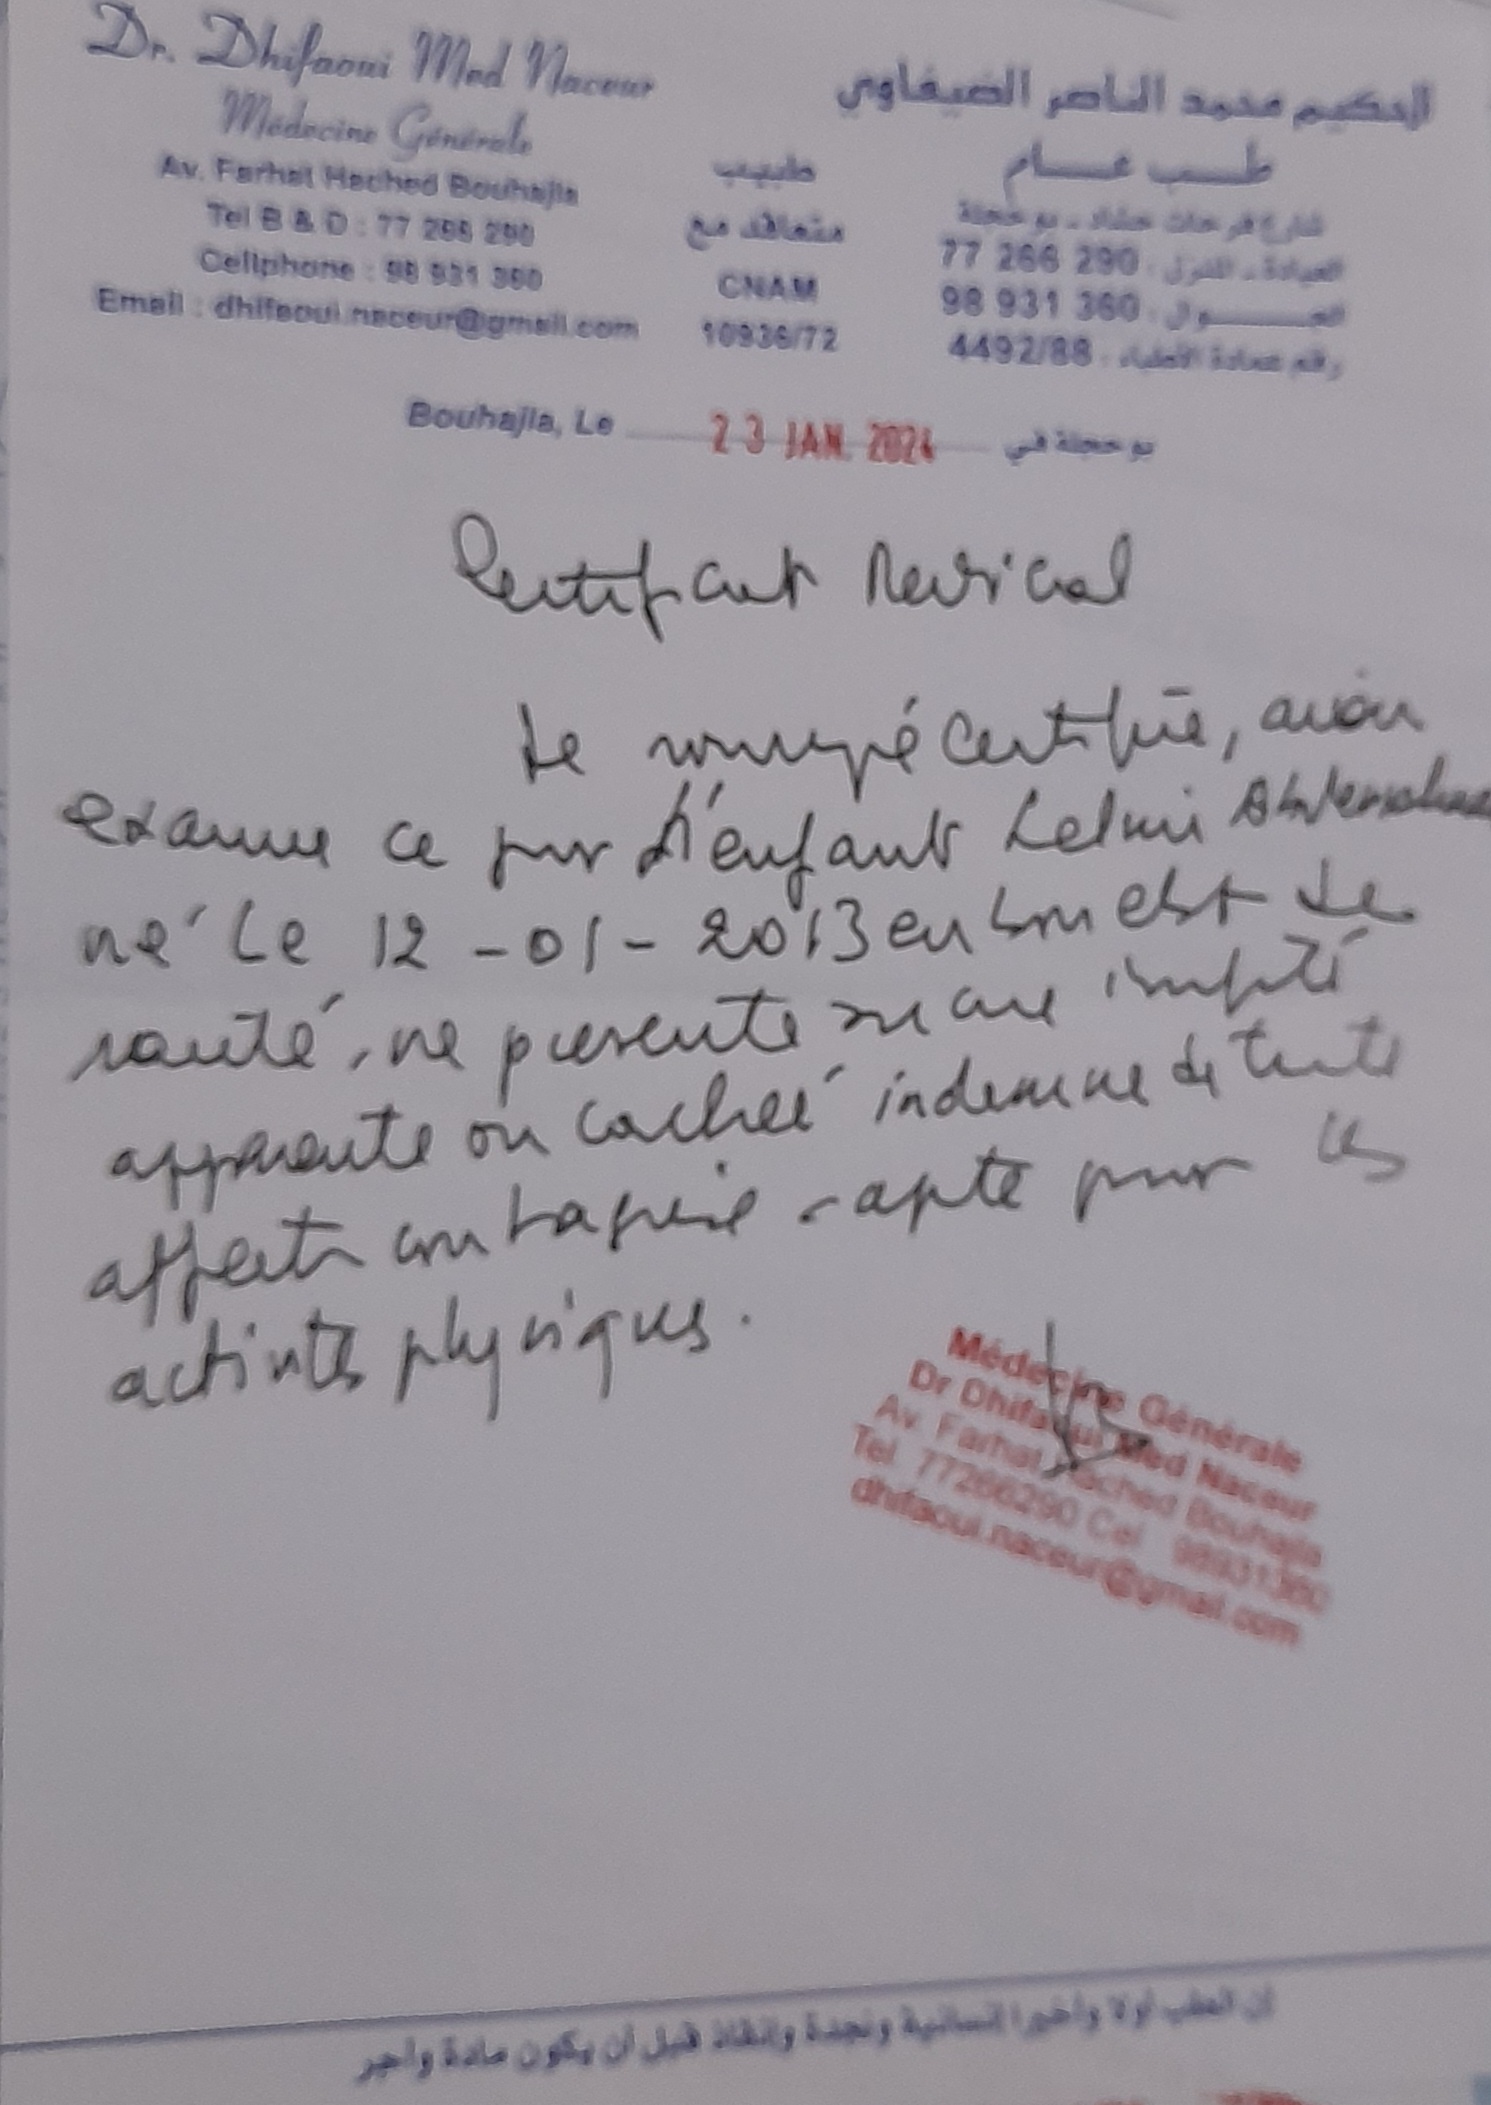 Dr. Dhifaoui Med Naceur
Médecine Générale
Av. Farhat Hached Bouhajla
Tel B & D : 77 266 290
Cellphone : 98 931 360
Email : dhifaoui.naceur@gmail.com
طبيب
متعاقد مع
CNAM
10936/72
الحكيم محمد الناصر الضيفاوي
طب عام
شارع فرحات حشاد - بوحجلة
العيادة - المنزل : 77 266 290
الجوال : 98 931 360
رقم عمادة الأطباء : 4492/88
Bouhajla, Le 23 JAN. 2024 بوحجلة في
Certificat Medical
Je soussigné certifie, avoir
examiné ce jour l'enfant Selmi
né le 12-01-2013 en bon est de
santé, ne presente aucune
apparente ou cachée indemne de toute
affection contagieuse - apte pour les
activités physiques.
Médecine Générale
Dr Dhifaoui Med Naceur
Av. Farhat Hached Bouhajla
Tel 77266290 Cel 98931360
dhifaoui.naceur@gmail.com
إن الطب أولا وأخيرا إنسانية ونجدة وإنقاذ قبل أن يكون مادة وأجر